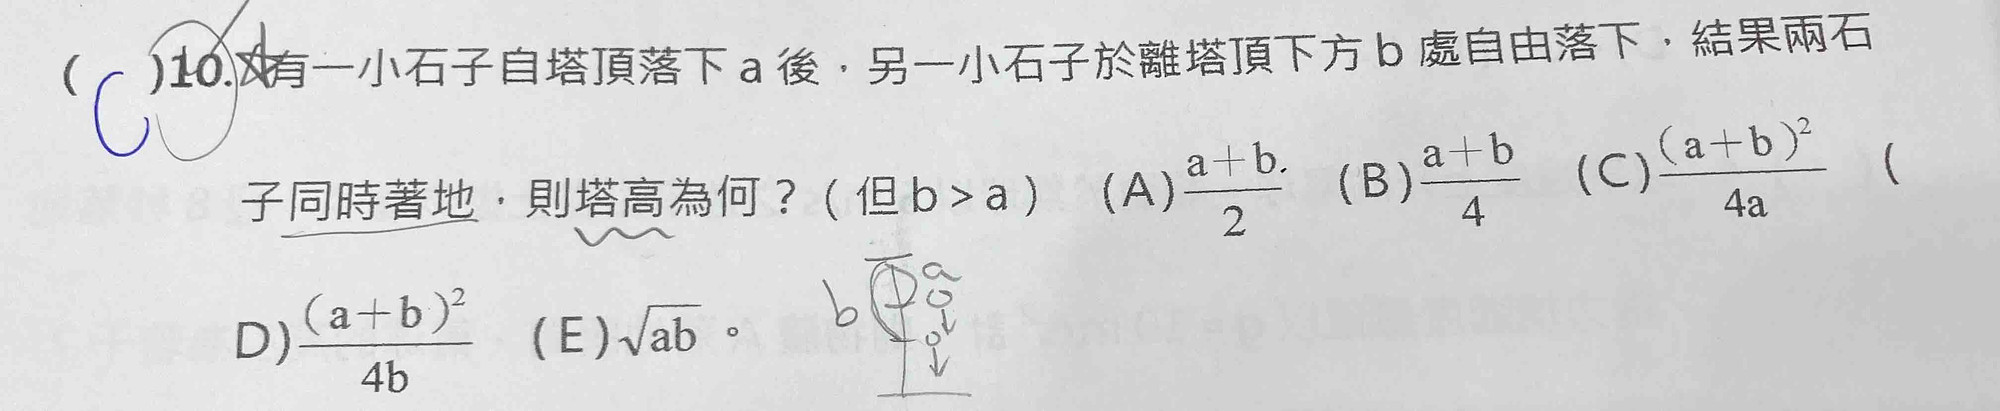 ( C )10.☆有一小石子自塔頂落下 a 後，另一小石子於離塔頂下方 b 處自由落下，結果兩石
子同時著地，則塔高為何？（但 b > a） (A) \frac{a+b.}{2} (B) \frac{a+b}{4} (C) \frac{(a+b)^2}{4a} (
D) \frac{(a+b)^2}{4b} (E) \sqrt{ab}。
b a